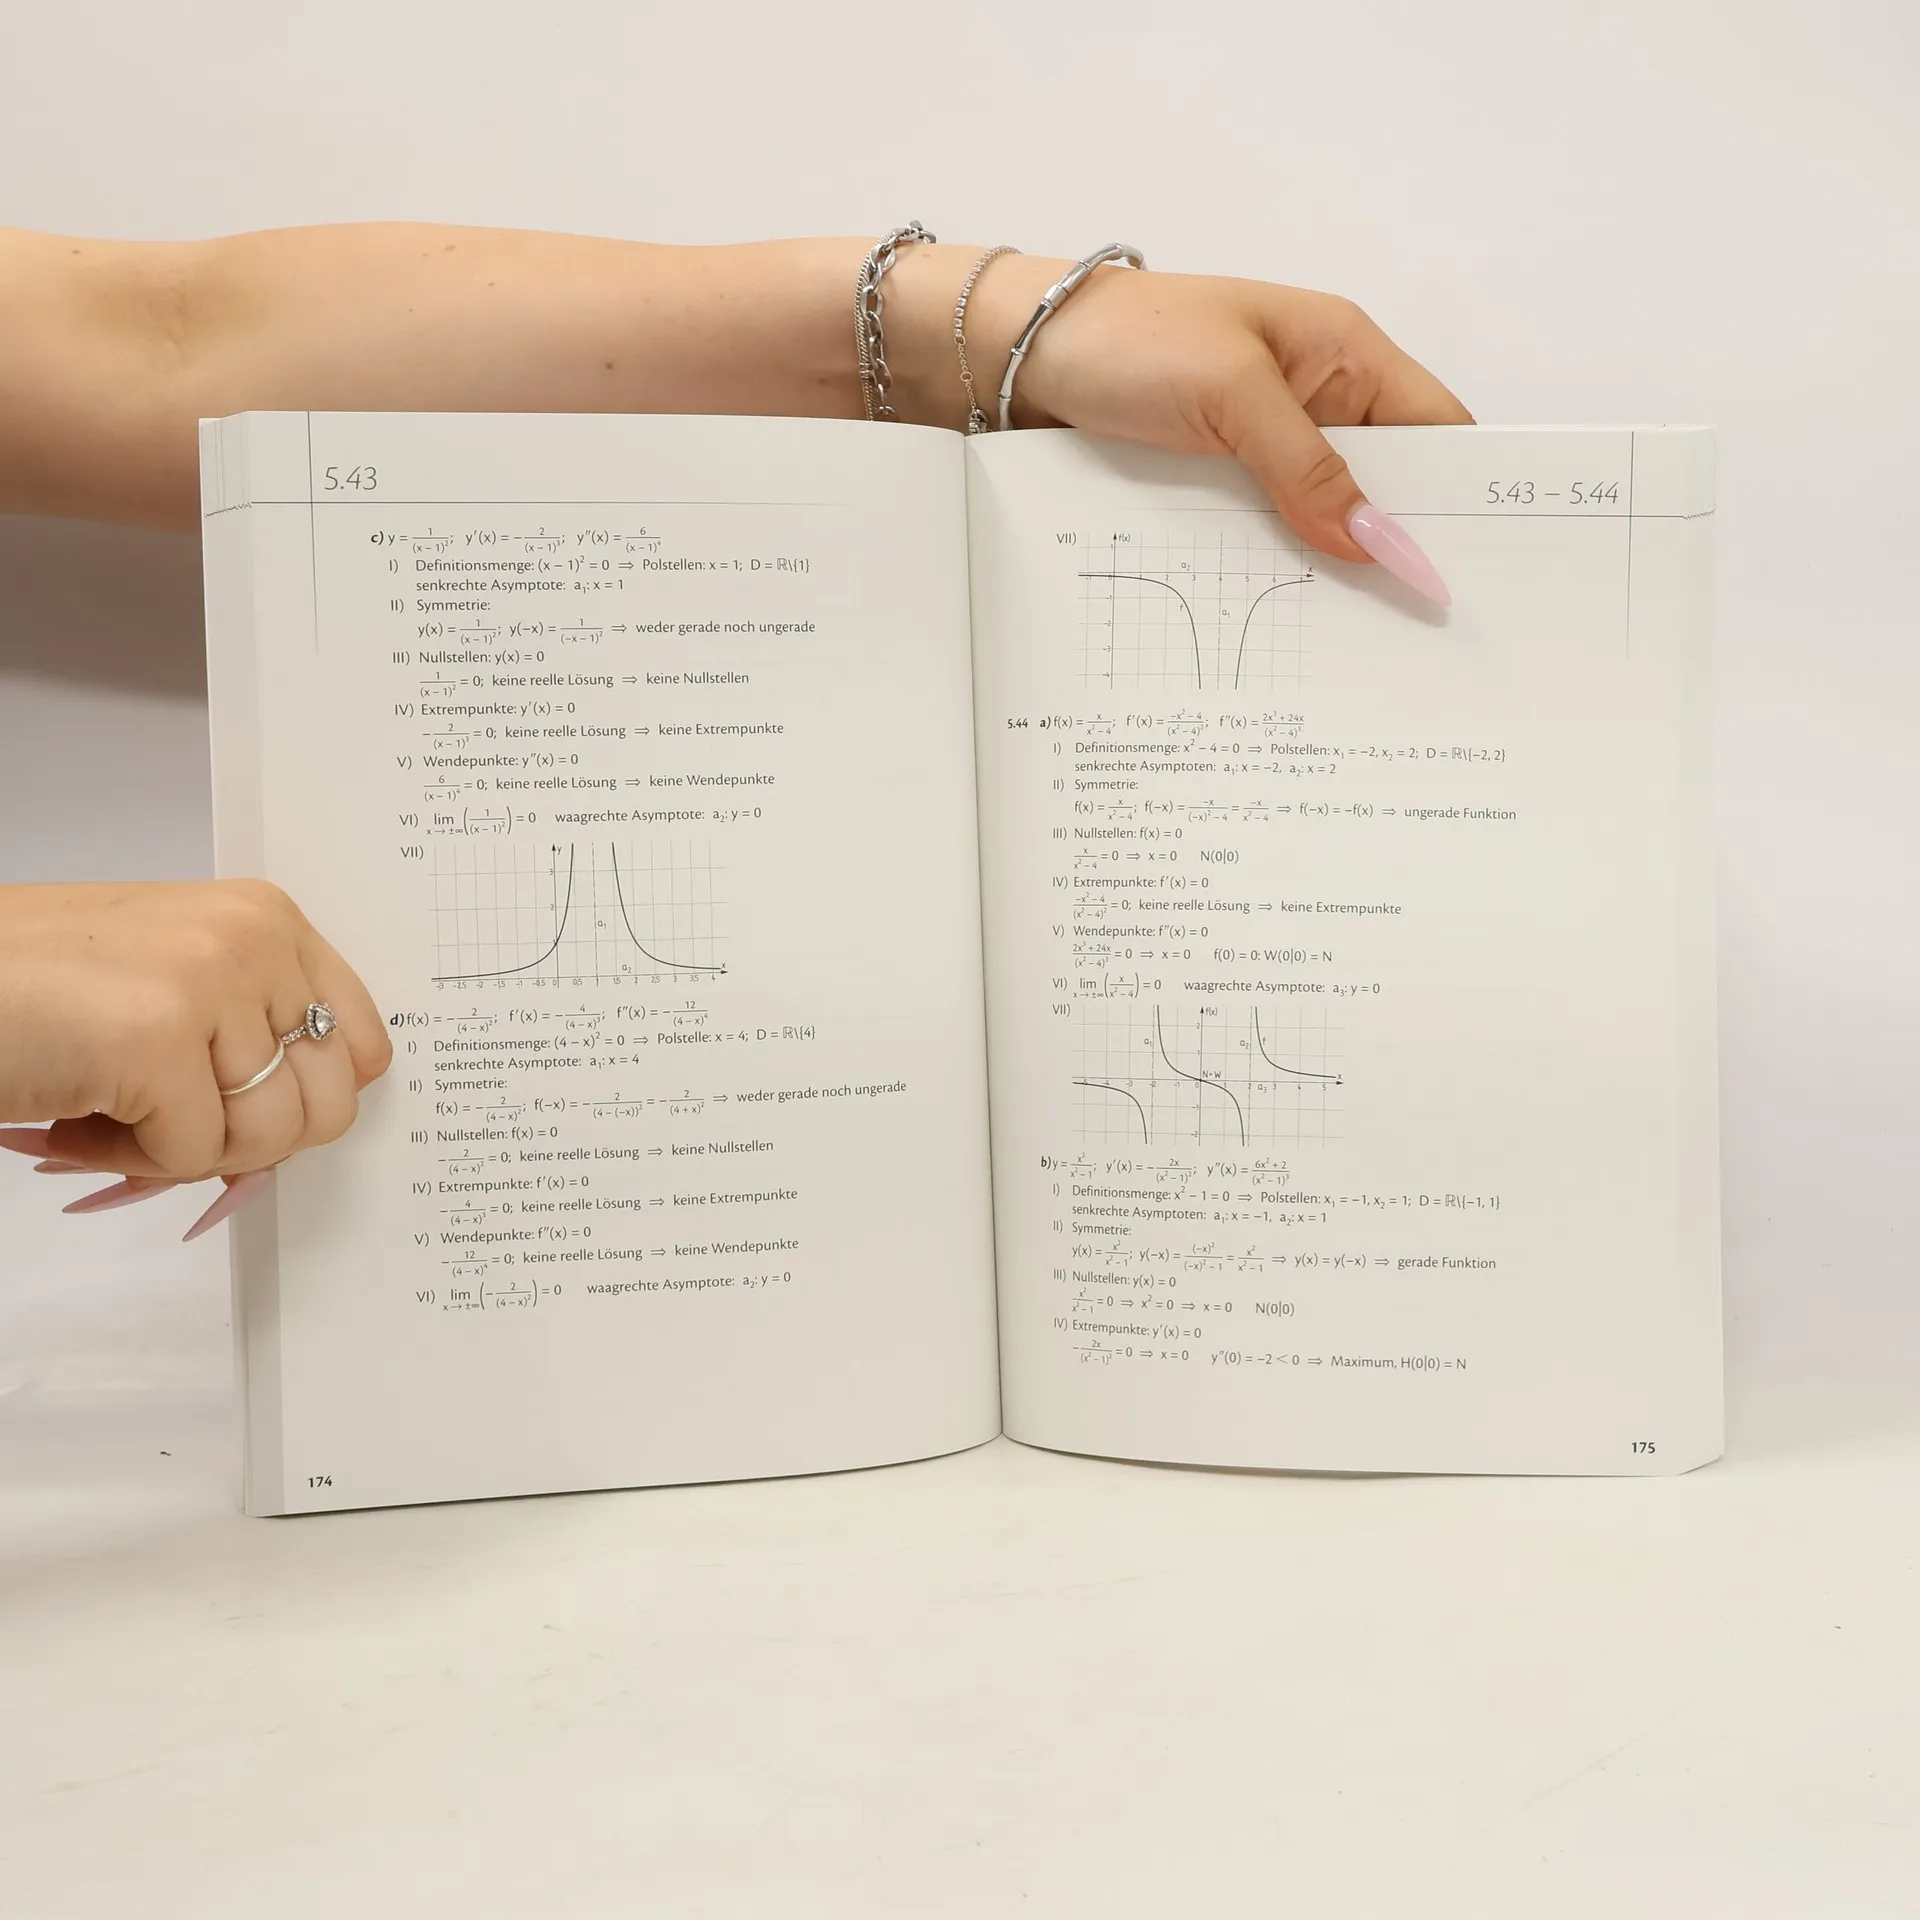 5.43
c) y = 1/(x – 1)²; y′(x) = –2/(x – 1)³; y″(x) = 6/(x – 1)⁴
I) Definitionsmenge: (x – 1)² = 0 ⟹ Polstellen: x = 1; D = ℝ\{1}
senkrechte Asymptote: a₁: x = 1
II) Symmetrie:
y(x) = 1/(x – 1)²; y(–x) = 1/(–x – 1)² ⟹ weder gerade noch ungerade
III) Nullstellen: y(x) = 0
1/(x – 1)² = 0; keine reelle Lösung ⟹ keine Nullstellen
IV) Extrempunkte: y′(x) = 0
–2/(x – 1)³ = 0; keine reelle Lösung ⟹ keine Extrempunkte
V) Wendepunkte: y″(x) = 0
6/(x – 1)⁴ = 0; keine reelle Lösung ⟹ keine Wendepunkte
VI) lim x → ±∞ (1/(x – 1)²) = 0 waagrechte Asymptote: a₂: y = 0
VII)
y
3
2
1
a₁
a₂
x
-3 -2,5 -2 -1,5 -1 -0,5 0 0,5 1 1,5 2 2,5 3 3,5 4
d) f(x) = –2/(4 – x)²; f′(x) = –4/(4 – x)³; f″(x) = –12/(4 – x)⁴
I) Definitionsmenge: (4 – x)² = 0 ⟹ Polstelle: x = 4; D = ℝ\{4}
senkrechte Asymptote: a₁: x = 4
II) Symmetrie:
f(x) = –2/(4 – x)²; f(–x) = –2/(4 – (–x))² = –2/(4 + x)² ⟹ weder gerade noch ungerade
III) Nullstellen: f(x) = 0
–2/(4 – x)² = 0; keine reelle Lösung ⟹ keine Nullstellen
IV) Extrempunkte: f′(x) = 0
–4/(4 – x)³ = 0; keine reelle Lösung ⟹ keine Extrempunkte
V) Wendepunkte: f″(x) = 0
–12/(4 – x)⁴ = 0; keine reelle Lösung ⟹ keine Wendepunkte
VI) lim x → ±∞ (–2/(4 – x)²) = 0 waagrechte Asymptote: a₂: y = 0
174
5.43 – 5.44
VII)
f(x)
1
a₂
x
-1 0 1 2 3 4 5 6 7
f
a₁
-1
-2
-3
-4
5.44 a) f(x) = x/(x² – 4); f′(x) = (–x² – 4)/(x² – 4)²; f″(x) = (2x³ + 24x)/(x² – 4)³
I) Definitionsmenge: x² – 4 = 0 ⟹ Polstellen: x₁ = –2, x₂ = 2; D = ℝ\{–2, 2}
senkrechte Asymptoten: a₁: x = –2, a₂: x = 2
II) Symmetrie:
f(x) = x/(x² – 4); f(–x) = –x/((–x)² – 4) = –x/(x² – 4) ⟹ f(–x) = –f(x) ⟹ ungerade Funktion
III) Nullstellen: f(x) = 0
x/(x² – 4) = 0 ⟹ x = 0 N(0|0)
IV) Extrempunkte: f′(x) = 0
(–x² – 4)/(x² – 4)² = 0; keine reelle Lösung ⟹ keine Extrempunkte
V) Wendepunkte: f″(x) = 0
(2x³ + 24x)/(x² – 4)³ = 0 ⟹ x = 0 f(0) = 0: W(0|0) = N
VI) lim x → ±∞ (x/(x² – 4)) = 0 waagrechte Asymptote: a₃: y = 0
VII)
f(x)
2
a₁
a₂
f
1
N=W
x
-5 -4 -3 -2 -1 0 1 2 a₃ 3 4 5
-1
-2
b) y = x²/(x² – 1); y′(x) = –2x/(x² – 1)²; y″(x) = (6x² + 2)/(x² – 1)³
I) Definitionsmenge: x² – 1 = 0 ⟹ Polstellen: x₁ = –1, x₂ = 1; D = ℝ\{–1, 1}
senkrechte Asymptoten: a₁: x = –1, a₂: x = 1
II) Symmetrie:
y(x) = x²/(x² – 1); y(–x) = (–x)²/((–x)² – 1) = x²/(x² – 1) ⟹ y(x) = y(–x) ⟹ gerade Funktion
III) Nullstellen: y(x) = 0
x²/(x² – 1) = 0 ⟹ x² = 0 ⟹ x = 0 N(0|0)
IV) Extrempunkte: y′(x) = 0
–2x/(x² – 1)² = 0 ⟹ x = 0 y″(0) = –2 < 0 ⟹ Maximum, H(0|0) = N
175